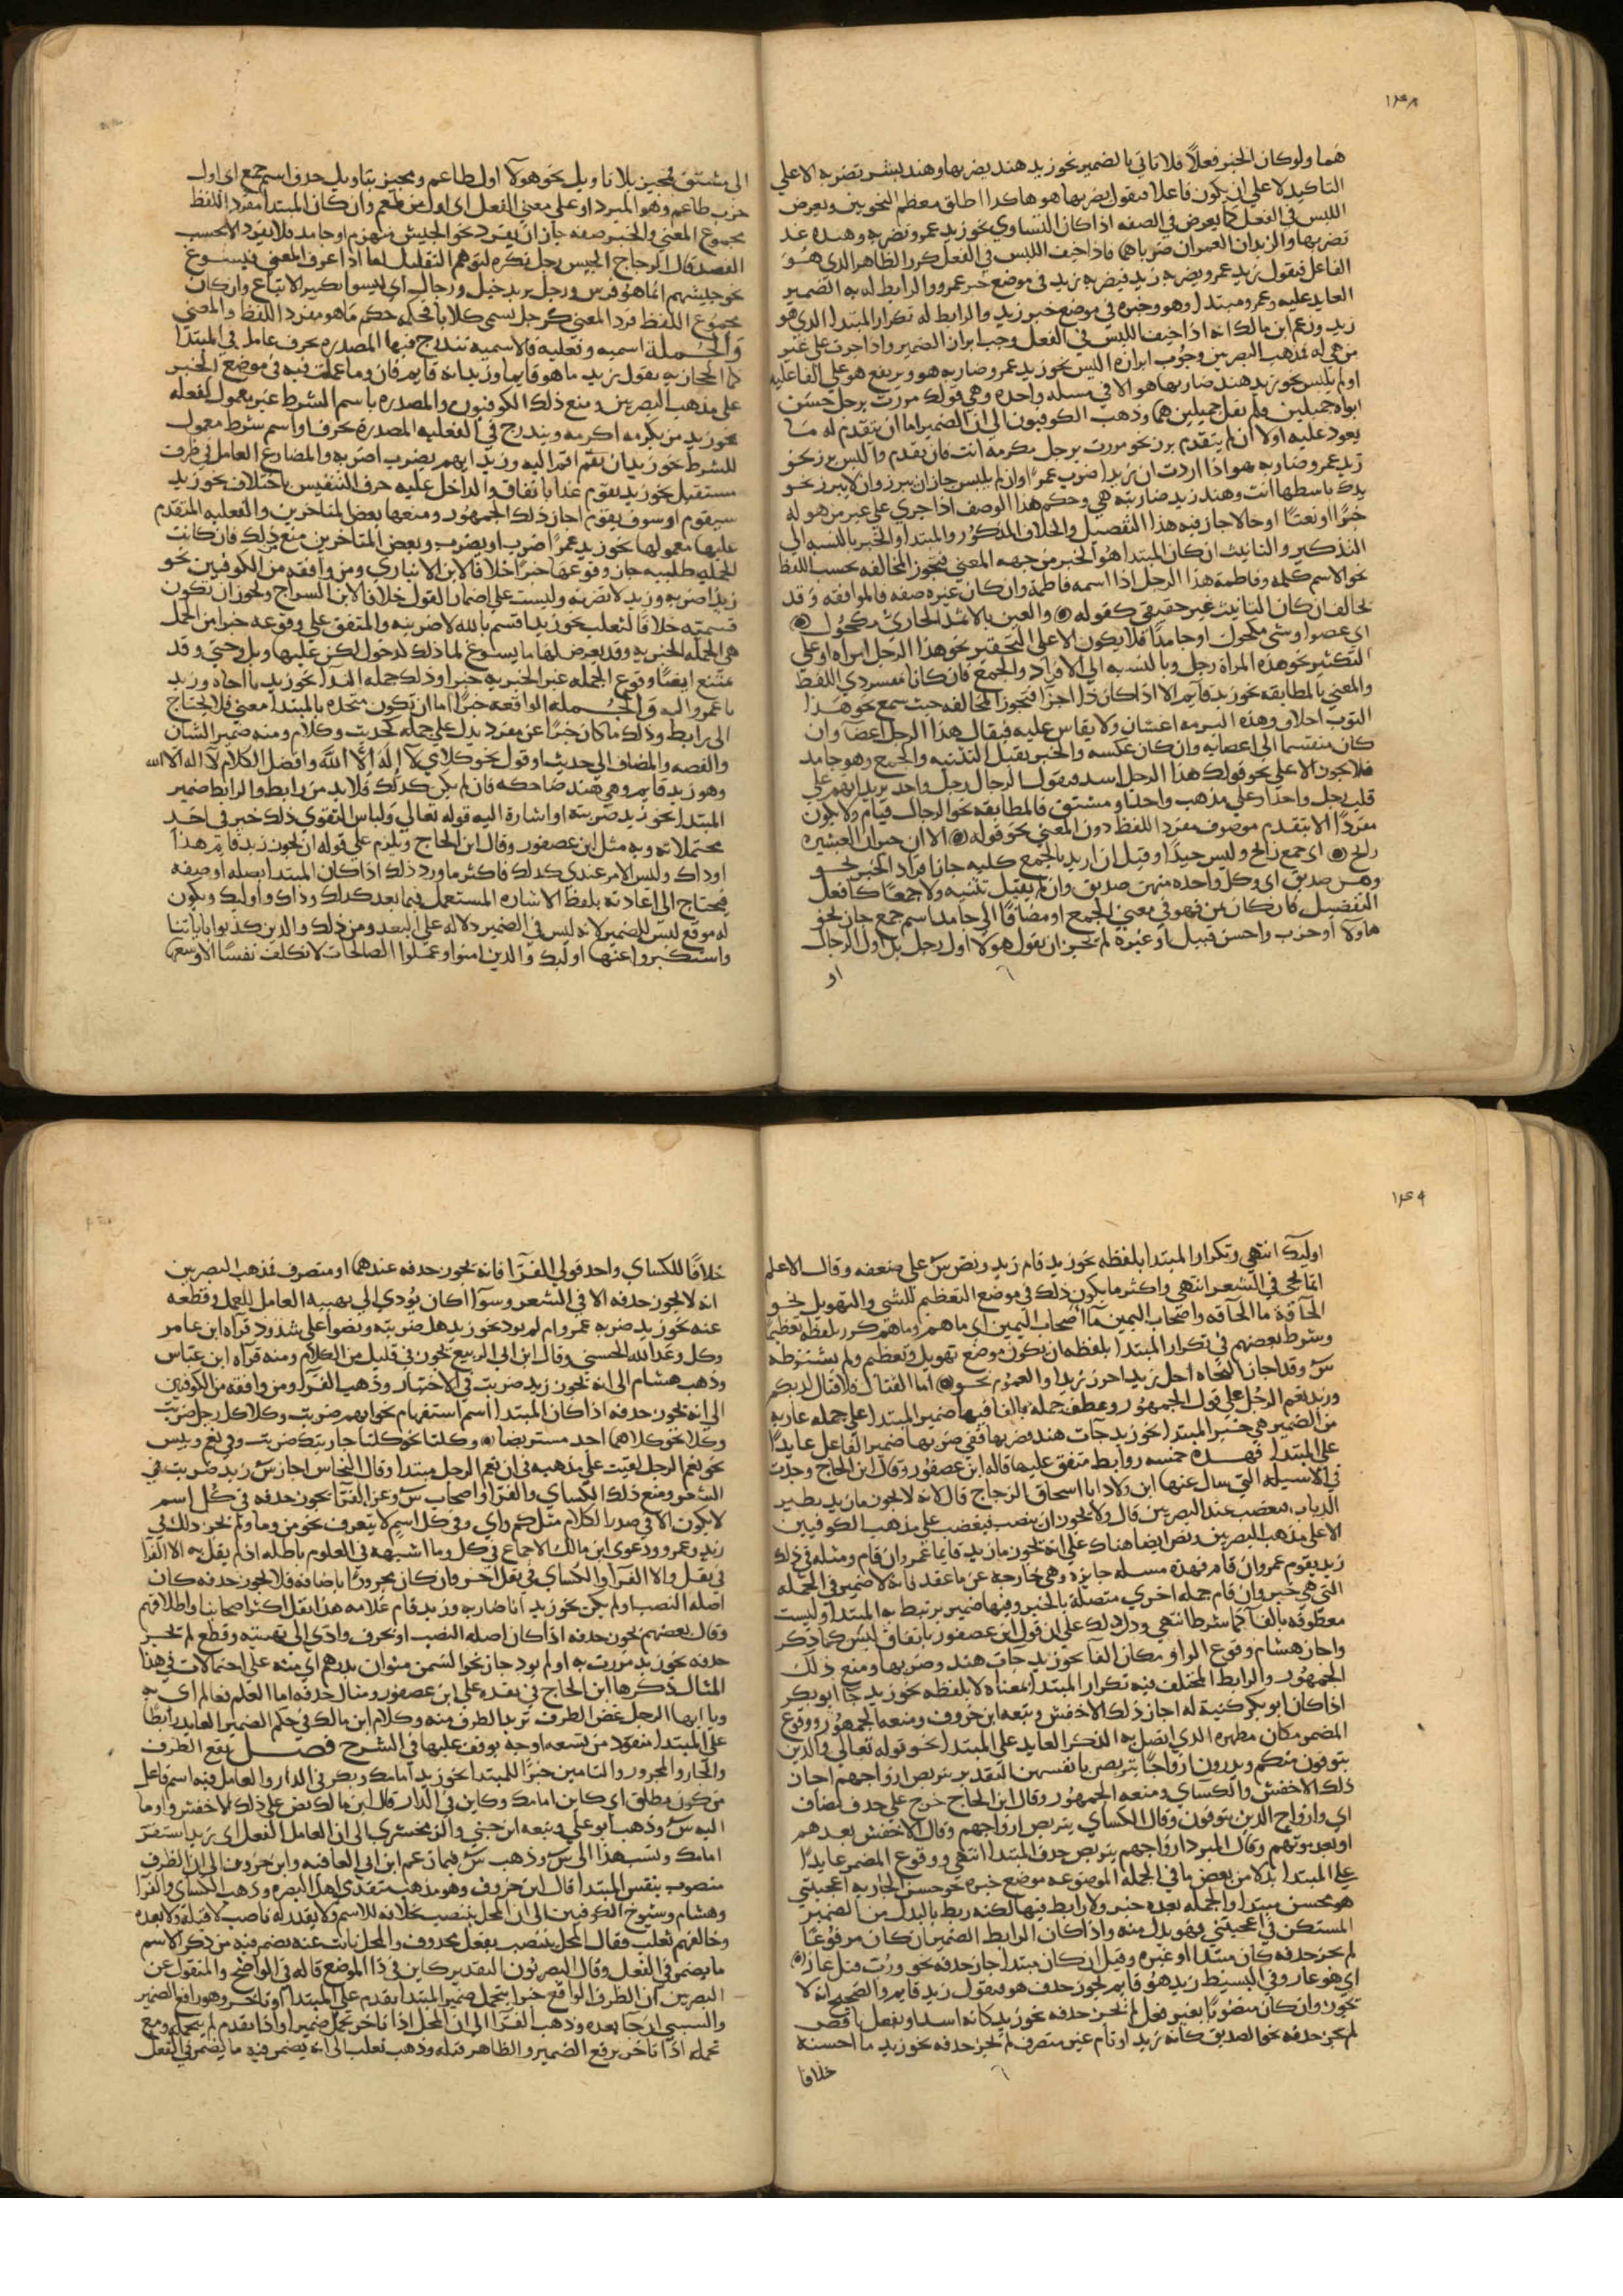 ١٤٨
هما ولو كان الخبر فعلا فلا تاتي بالضمير نحو زيد هند يضربها وهند بشر تضربه الا علي
التاكيد لا علي ان يكون فاعلا فيقول يضربها هو هاكذا اطلق معظم النحويين ويعرض
اللبس في الفعل كما يعرض في الصفه اذا كان التساوي نحو زيد عمرو يضربه وهنده عند
تضربها والزيدان العمران ضرباهما فاذا خيف اللبس في الفعل كرر الظاهر الذي هو
الفاعل فيقول زيد عمرو يضربه زيد فيضربه زيد في موضع خبر عمرو والرابط له به الضمير
العايد عليه وعمرو مبتدا وهو وخبره في موضع خبر زيد والرابط له تكرار المبتدا الذي هو
زيد وزعم ابن مالك انه اذا خيف اللبس في الفعل وجب ابراز الضمير واذا جرت علي غير
من هي له فمذهب البصريين وجوب ابرازه البس نحو زيد عمرو ضاربه هو ويرتفع هو علي الفاعليه
او لم يلبس نحو زيد هند ضاربها هو الا في مسله واحده وهي قولك مررت برجل حسن
ابواه جميلين ولم يقل جميلين هما وذهب الكوفيون الي ان الضمير اما ان يتقدم له ما
يعود عليه اولا ان لم يتقدم برز نحو مررت برجل مكرمه انت فان تقدم والبس برز نحو
زيد عمرو ضاربه هو اذا اردت ان زيدا ضرب عمرا وان لم يلبس جاز ان يبرز وان لا يبرز نحو
يدك باسطها انت وهند زيد ضاربته هي وحكم هذا الوصف اذا جري علي غير من هو له
خبرا او نعتا او حالا جاز فيه هذا التفصيل والخلاف المذكور والمبتدا والخبر بالنسبه الي
التذكير والتانيث ان كان المبتدا هو الخبر من جهه المعني فتجوز المخالفه بحسب اللفظ
نحو الاسم كلمه وفاطمة هذا الرجل اذا اسمه فاطمة وان كان غيره صفه فالموافقه وقد
تخالف ان كان التانيث غير حقيقي كقوله والعين بالاثمد الحاري مكحول
اي عضوا وشي مكحول او جامدا فلا يكون الا علي التحقير نحو هذا الرجل امراه او علي
التكثير نحو هذه المراة رجل وبالنسبه الي الافراد والجمع فان كانا مفردي اللفظ
والمعني بالمطابقه نحو زيد قايم الا اذا كان ذا اجزا فتجوز المخالفه حيث سمع نحو هذا
الثوب اخلاق وهذه البرمه اعشار ولا يقاس عليه فيقال هذا الرجل اعضا وان
كان منقسما الي اعضايه وان كان عكسه والخبر يقبل التثنيه والجمع وهو جامد
فلا يجوز الا علي نحو قولك هذا الرجل اسد فيقول الرجال رجل واحد يريد انهم علي
قلب رجل واحد او علي مذهب واحد او مشتق فالمطابقه نحو الرجال قيام ولا يجوز
مفردا الا بتقدم موصوف مفرد اللفظ دون المعني نحو قوله الا ان جيران العشيره
رايح اي جمع رايح وليس جيدا وقيل ان اريد بالجمع كليه جاز افراد الخبر نحو
وهن صديق اي وكل واحده منهن صديق وان لم يقبل تثنيه ولا جمعا كافعل
التفضيل فان كان من فهو في معني الجمع او مضافا الي جامد اسم جمع جاز نحو
هاولا او حزب واحسن قبيل او غيره لم يجز ان يقول هولا اول رجل بل اول الرجال
او
الي مشتق فيجيز بلا تاويل نحو هولا اول طاعم ويجيز بتاويل حذف اسم جمع اي اول
حزب طاعم وهو المبرد او علي معني الفعل اي اول من طعم وان كان المبتدا مفرد اللفظ
مجموع المعني والخبر صفه جاز ان يفرد نحو الجيش منهزم او جامد فلا يفرد الا بحسب
القصد قال الزجاج الجيس رجل نكره لتوهم التقليل فاما اذا عرف المعني فيسوغ
نحو جيشهم انما هو فرس ورجل يريد خيل ورجال اي ليسوا بكثير الاتباع وان كان
مجموع اللفظ فرد المعني كرجل يسمي كلابا فحكمه حكم ما هو مفرد اللفظ والمعني
والجملة اسميه وفعليه فالاسميه تندرج فيها المصدره بحرف عامل في المبتدا
كما الحجازيه يقول زيد ما هو قايما وزيد انه قايم فان وما عملت فيه في موضع الخبر
علي مذهب البصريين ومنع ذلك الكوفيون والمصدره باسم الشرط غير معمول لفعله
نحو زيد من يكرمه اكرمه ويندرج في الفعليه المصدرة بحرف او اسم شرط معمول
للشرط نحو زيد ان يقم اقم اليه وزيد ايهم يضرب اضربه والمضارع العامل في ظرف
مستقبل نحو زيد يقوم غدا باتفاق والداخل عليه حرف التنفيس باختلاف نحو زيد
سيقوم او سوف يقوم اجاز ذلك الجمهور ومنعها بعض المتاخرين والفعليه المتقدم
عليها معمولها نحو زيد عمرا ضرب او يضرب وبعض المتاخرين منع ذلك فان كانت
الجمله طلبيه جاز وقوعها خبرا خلافا لابن الانباري ومن وافقه من الكوفيين نحو
زيد اضربه وزيد لا تضربه وليست علي اضمار القول خلافا لابن السراج وتجوز ان تكون
قسميه خلافا لثعلب نحو زيد اقسم بالله لاضربنه والمتفق علي وقوعه خبرا من الجمل
هي الجمله الخبريه وقد يعرض لها ما يسوغ لما ذلك كدخول لكن عليها وبل وحتي وقد
يمتنع ايضا وقوع الجمله غير الخبريه خبرا وذلك جمله الندا نحو زيد يا اخاه وزيد
يا عمرو اليه والجملة الواقعه خبرا اما ان تكون متحده بالمبتدا معني فلا يحتاج
الي رابط وذلك ما كان خبرا عن مفرد يدل علي جمله كحديث وكلام ومنه ضمير الشان
والقصه والمضاف الي حديث او قول نحو كلامي لا إله إلا الله وافضل الكلام لا اله الا الله
وهو زيد قايم وهي هند ضاحكه فان لم يكن كذلك فلا بد من رابط والرابط ضمير
المبتدا نحو زيد ضربته او اشارة اليه قوله تعالي ولباس التقوي ذلك خير في احد
محتملاته وبه مثل ابن عصفور وقال ابن الحاج ويلزم علي قوله ان يجوز زيد قايم هذا
او ذاك وليس الامر عندي كذلك فاكثر ما ورد ذلك اذا كان المبتدا بصله او صفه
فيحتاج الي اعادته بلفظ الاشاره المستعمل فيما بعد كذلك وذاك واوليك ويكون
له موقع ليس للضمير لانه ليس في الضمير دلاله علي البعد ومن ذلك والذين كذبوا باياتنا
واستكبروا عنها اوليك والذين امنوا وعملوا الصالحات لا نكلف نفسا الا وسعها
١٤٩
اوليك انتهي وتكرار المبتدا بلفظه نحو زيد قام زيد ونص س علي ضعفه وقال الاعلم
انما يجي في الشعر انتهي واكثر ما يكون ذلك في موضع التعظيم للشي والتهويل نحو
الحاقة ما الحاقه واصحاب اليمين ما اصحاب اليمين اي ما هم وما هم كرر بلفظه تعظيما
وشرط بعضهم في تكرار المبتدا بلفظه ان يكون موضع تهويل وتعظيم ولم يشترطه
س وقد اجاز النحاه اجل زيد احرز زيدا والعموم نحو اما القتال فلا قتال لديكم
وزيد نعم الرجل علي قول الجمهور وعطف جمله بالفا فيها ضمير المبتدا علي جمله عاريه
من الضمير هي خبر المبتدا نحو زيد جات هند فضربها ففي ضربها ضمير الفاعل عايدا
علي المبتدا فهذه خمسه روابط متفق عليها قاله ابن عصفور وقال ابن الحاج وجدت
في الاسيله التي سال عنها ابن ولاد ابا اسحاق الزجاج قال لانه لا يجوز ما زيد يطير
الذباب فيغضب عند البصريين قال ولا يجوز ان ينصب فيغضب علي مذهب الكوفيين
الا علي مذهب البصريين ونص ايضا هناك علي انه يجوز ما زيد قايما عمرو ان قام ومثله في ذلك
زيد يقوم عمرو ان قام فهذه مسله جايزه وهي خارجه عن ما عقد بانه لا ضمير في الجمله
التي هي خبر وان قام جمله اخري متصلة بالخبر وفيها ضمير يرتبط به المبتدا وليست
معطوفه بالفا كما شرط انتهي ودل ذلك علي ان قول ابن عصفور باتفاق ليس كما ذكر
واجاز هشام وقوع الواو مكان الفا نحو زيد جات هند وضربها ومنع ذلك
الجمهور والرابط المختلف فيه تكرار المبتدا بمعناه لا بلفظه نحو زيد جا ابو بكر
اذا كان ابو بكر كنية له اجاز ذلك الاخفش وتبعه ابن خروف ومنعه الجمهور ووقوع
المضمر مكان مظهره الذي اتصل به الذكر العايد علي المبتدا نحو قوله تعالي والذين
يتوفون منكم ويذرون ازواجا يتربصن بانفسهن التقدير يتربص ازواجهم اجاز
ذلك الاخفش والكساي ومنعه الجمهور وقال ابن الحاج خرج علي حذف مضاف
اي وازواج الذين يتوفون وقال الكساي يتربص ازواجهم وقال الاخفش بعدهم
او بعد موتهم وقال المبرد ازواجهم يتربصن حذف المبتدا انتهي ووقوع المضمر عايدا
علي المبتدا بدلا من بعض ما في الجملة الموضوعه موضع خبره نحو حسن الجاريه اعجبتني
هو فحسن مبتدا والجمله بعده خبر ولا رابط فيها لكنه ربط بالبدل من الضمير
المستكن في اعجبتني وهو بدل منه واذا كان الرابط الضمير ان كان مرفوعا
لم يجز حذفه كان مبتدا او غيره وقيل ان كان مبتدا جاز حذفه نحو ورب قتل عار
اي هو عار وفي البسيط زيد هو قايم يجوز حذف هو فيقول زيد قايم والصحيح انه لا
يجوز وان كان منصوبا بغير فعل لم يجز حذفه نحو زيد كانه اسد او بفعل ناقص
لم يجز حذفه نحو الصديق كانه زيد او تام غير متصرف لم يجز حذفه نحو زيد ما احسنه
خلافا
خلافا للكساي واحد قولي الفرا فانه يجوز حذفه عندهما او متصرف فمذهب البصريين
انه لا يجوز حذفه الا في الشعر وسوا اكان يودي الي تهييه العامل للعمل وقطعه
عنه نحو زيد ضربه عمرو ام لم يود نحو زيد هل ضربته ونصوا علي شذوذ قراه ابن عامر
وكل وعد الله الحسني وقال ابن ابي الربيع يجوز في قليل من الكلام ومنه قراه ابن عباس
وذهب هشام الي انه يجوز زيد ضربت في الاختيار وذهب الفرا ومن وافقه من الكوفيين
الي انه يجوز حذفه اذا كان المبتدا اسم استفهام نحو ايهم ضربت وكلا كل رجل ضربت
وكلا نحو كلاهما احد مستريضا وكلتا نحو كلتا جاريتك ضربت وفي نعم وبيس
نحو نعم الرجل لقيت علي مذهبه في ان نعم الرجل مبتدا وقال النحاس اجاز س زيد ضربت في
الشعر ومنع ذلك الكساي والفرا واصحاب س وعن الفرا يجوز حذفه في كل اسم
لا يكون الا في صدر الكلام مثل كم واي وفي كل اسم لا يتعرف نحو من وما ولم يجز ذلك في
زيد وعمرو ودعوي ابن مالك الاجماع في كل وما اشبهه في العلوم باطله اذ لم يقل به الا الفرا
في نقل والا الفرا والكساي في نقل اخر وان كان مجرورا باضافه فلا يجوز حذفه كان
اصله النصب او لم يكن نحو زيد انا ضاربه وزيد قام غلامه هذا نقل اكثر اصحابنا واطلاقهم
وقال بعضهم يجوز حذفه اذا كان اصله النصب او بحرف وادي الي تهييه وقطع لم يجز
حذفه نحو زيد مررت به او لم يود جاز نحو السمن منوان بدرهم اي منه علي احتمالات في هذا
المثال ذكرها ابن الحاج في نقده علي ابن عصفور ومثال حذفه اما العلم فعالم اي به
ويا ايها الرجل غض الطرف تريد الطرف منه وكلام ابن مالك في حكم الضمير العايد رابطا
علي المبتدا منقود من تسعه اوجه يوقف عليها في الشرح فصل يقع الظرف
والجار والمجرور والتامين خبرا للمبتدا نحو زيد امامك وبكر في الدار والعامل فيه اسم فاعل
من كون مطلق اي كاين امامك وكاين في الدار قال ابن مالك نص علي ذلك الاخفش واوما
اليه س وذهب ابو علي وتبعه ابن جني والزمخشري الي ان العامل الفعل اي زيد استقر
امامك ونسب هذا الي س وذهب س فيما زعم ابن ابي العافيه وابن خروف الي ان الظرف
منصوب بنفس المبتدا قال ابن خروف وهو مذهب متقدمي اهل البصره وذهب الكساي والفرا
وهشام وشيوخ الكوفيين الي ان المحل ينتصب بخلافه للاسم ولا يقدر له ناصب لا قبله ولا بعده
وخالفهم ثعلب فقال المحل ينتصب بفعل محذوف والمحل نايب عنه يضمر فيه من ذكر الاسم
ما يضمر في الفعل وقال البصريون التقدير كاين في ذا الموضع قاله في الواضح والمنقول عن
البصريين ان الظرف الواقع خبرا يتحمل ضمير المبتدا تقدم علي المبتدا او تاخر وهو رافع الضمير
والسببي ان جا بعده وذهب الفرا الي ان المحل اذا تاخر تحمل ضميرا واذا تقدم لم يتحمله ومع
تحمله اذا تاخر يرفع الضمير والظاهر قبله وذهب ثعلب الي انه يضمر فيه ما يضمر في الفعل